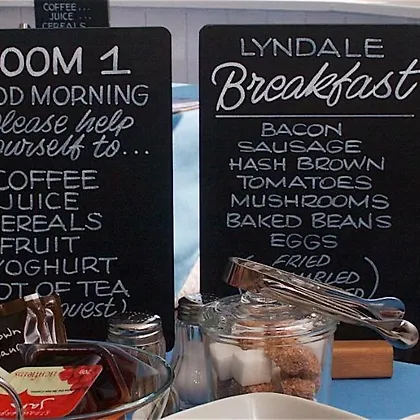 COFFEE...
JUICE ...
CEREALS
OOM 1
OD MORNING
lease help
ourself to...
COFFEE
JUICE
EREALS
FRUIT
YOGHURT
OT OF TEA
quest)
LYNDALE
Breakfast
BACON
SAUSAGE
HASH BROWN
TOMATOES
MUSHROOMS
BAKED BEANS
EGGS
(FRIED